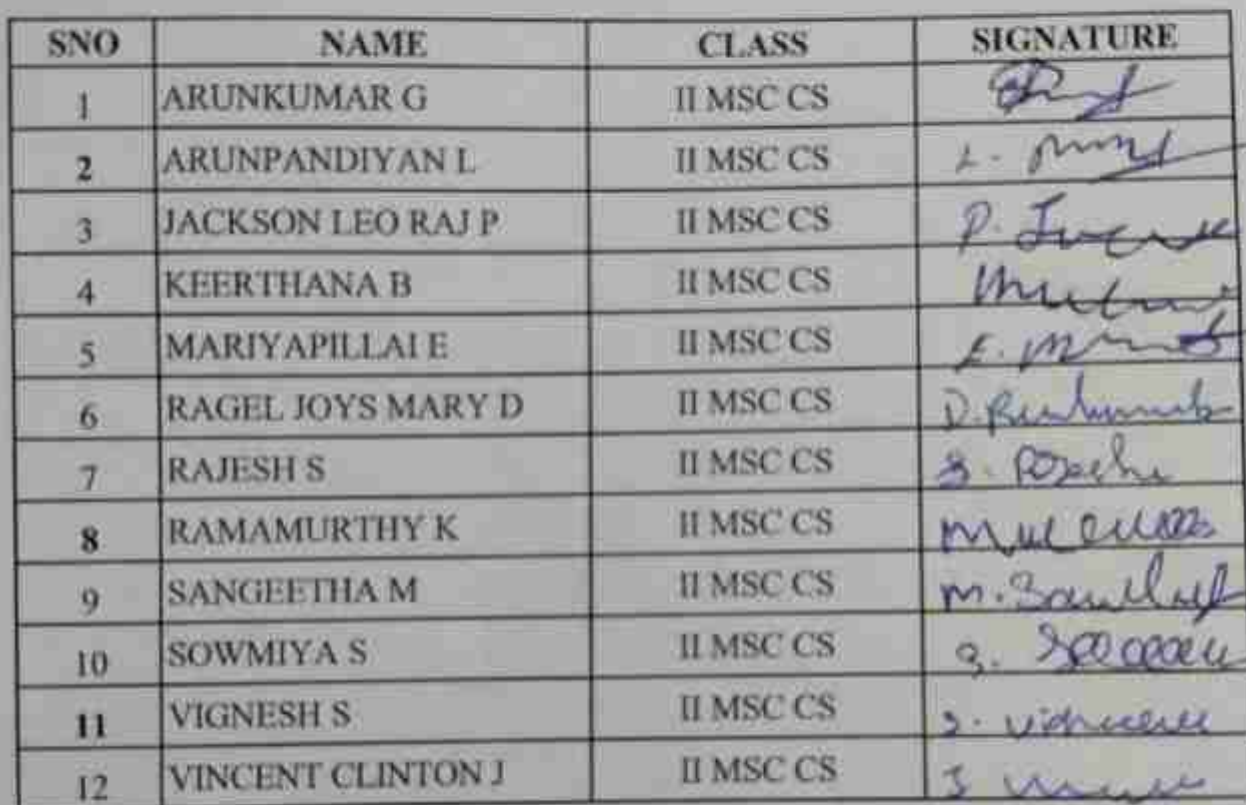 SNO NAME CLASS SIGNATURE
1 ARUNKUMAR G II MSC CS
2 ARUNPANDIYAN L II MSC CS L.
3 JACKSON LEO RAJ P II MSC CS P.
4 KEERTHANA B II MSC CS
5 MARIYAPILLAI E II MSC CS E.
6 RAGEL JOYS MARY D II MSC CS D.
7 RAJESH S II MSC CS S.
8 RAMAMURTHY K II MSC CS
9 SANGEETHA M II MSC CS M.
10 SOWMIYA S II MSC CS S.
11 VIGNESH S II MSC CS S.
12 VINCENT CLINTON J II MSC CS J